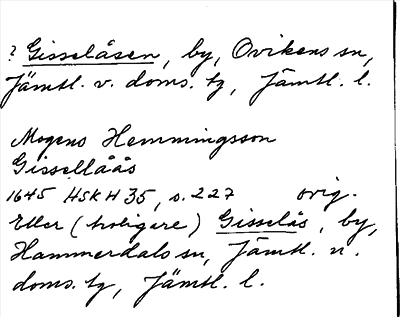 ? Gisselåsen, by, Ovikens sn,
Jämtl. v. doms. tg, Jämtl. l.
Mogens Hemmingsson
Gissellåås
1645 HSK H 35, s. 227 orig.
Eller (troligare) Gisselås, by,
Hammerdals sn, Jämtl. n.
doms. tg, Jämtl. l.